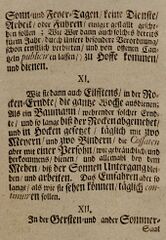 Sonn- und Feyer-Tagen, keine Dienste,
Arbeit oder Fuhren, einiger gestalt gesche-
hen sollen; Wo Wir dann auch solches bereits
in diesem Jahr, durch Unsere besondere Verordnung
schon ernstlich verbiethen, und von offenen Can-
zeln publiciren lassen, zu Hoffe kommen
und dienen.
XI.
Wie sie dann auch Elfftens, in der Ro-
cken-Erndte, die gantze Woche ausdienen.
Als ein Baumann, wehrender solcher Ernd-
te, und so lange biß der Rocken abgemeyet,
und in Hocken gesetzt, täglich mit zwo
Meyern, und zwo Bindern, die Cossaten
aber mit einer Persohn, wie gebräuchlich und
herkommens, dienen, und allemahl bey dem
Meyen, biß der Sonnen Untergang blei-
ben, und arbeiten. Das Einfahren aber so
lange, als wie sie sehen können, täglich con-
tinuiren sollen.
XII.
In der Gersten- und ander Sommer-
Saat